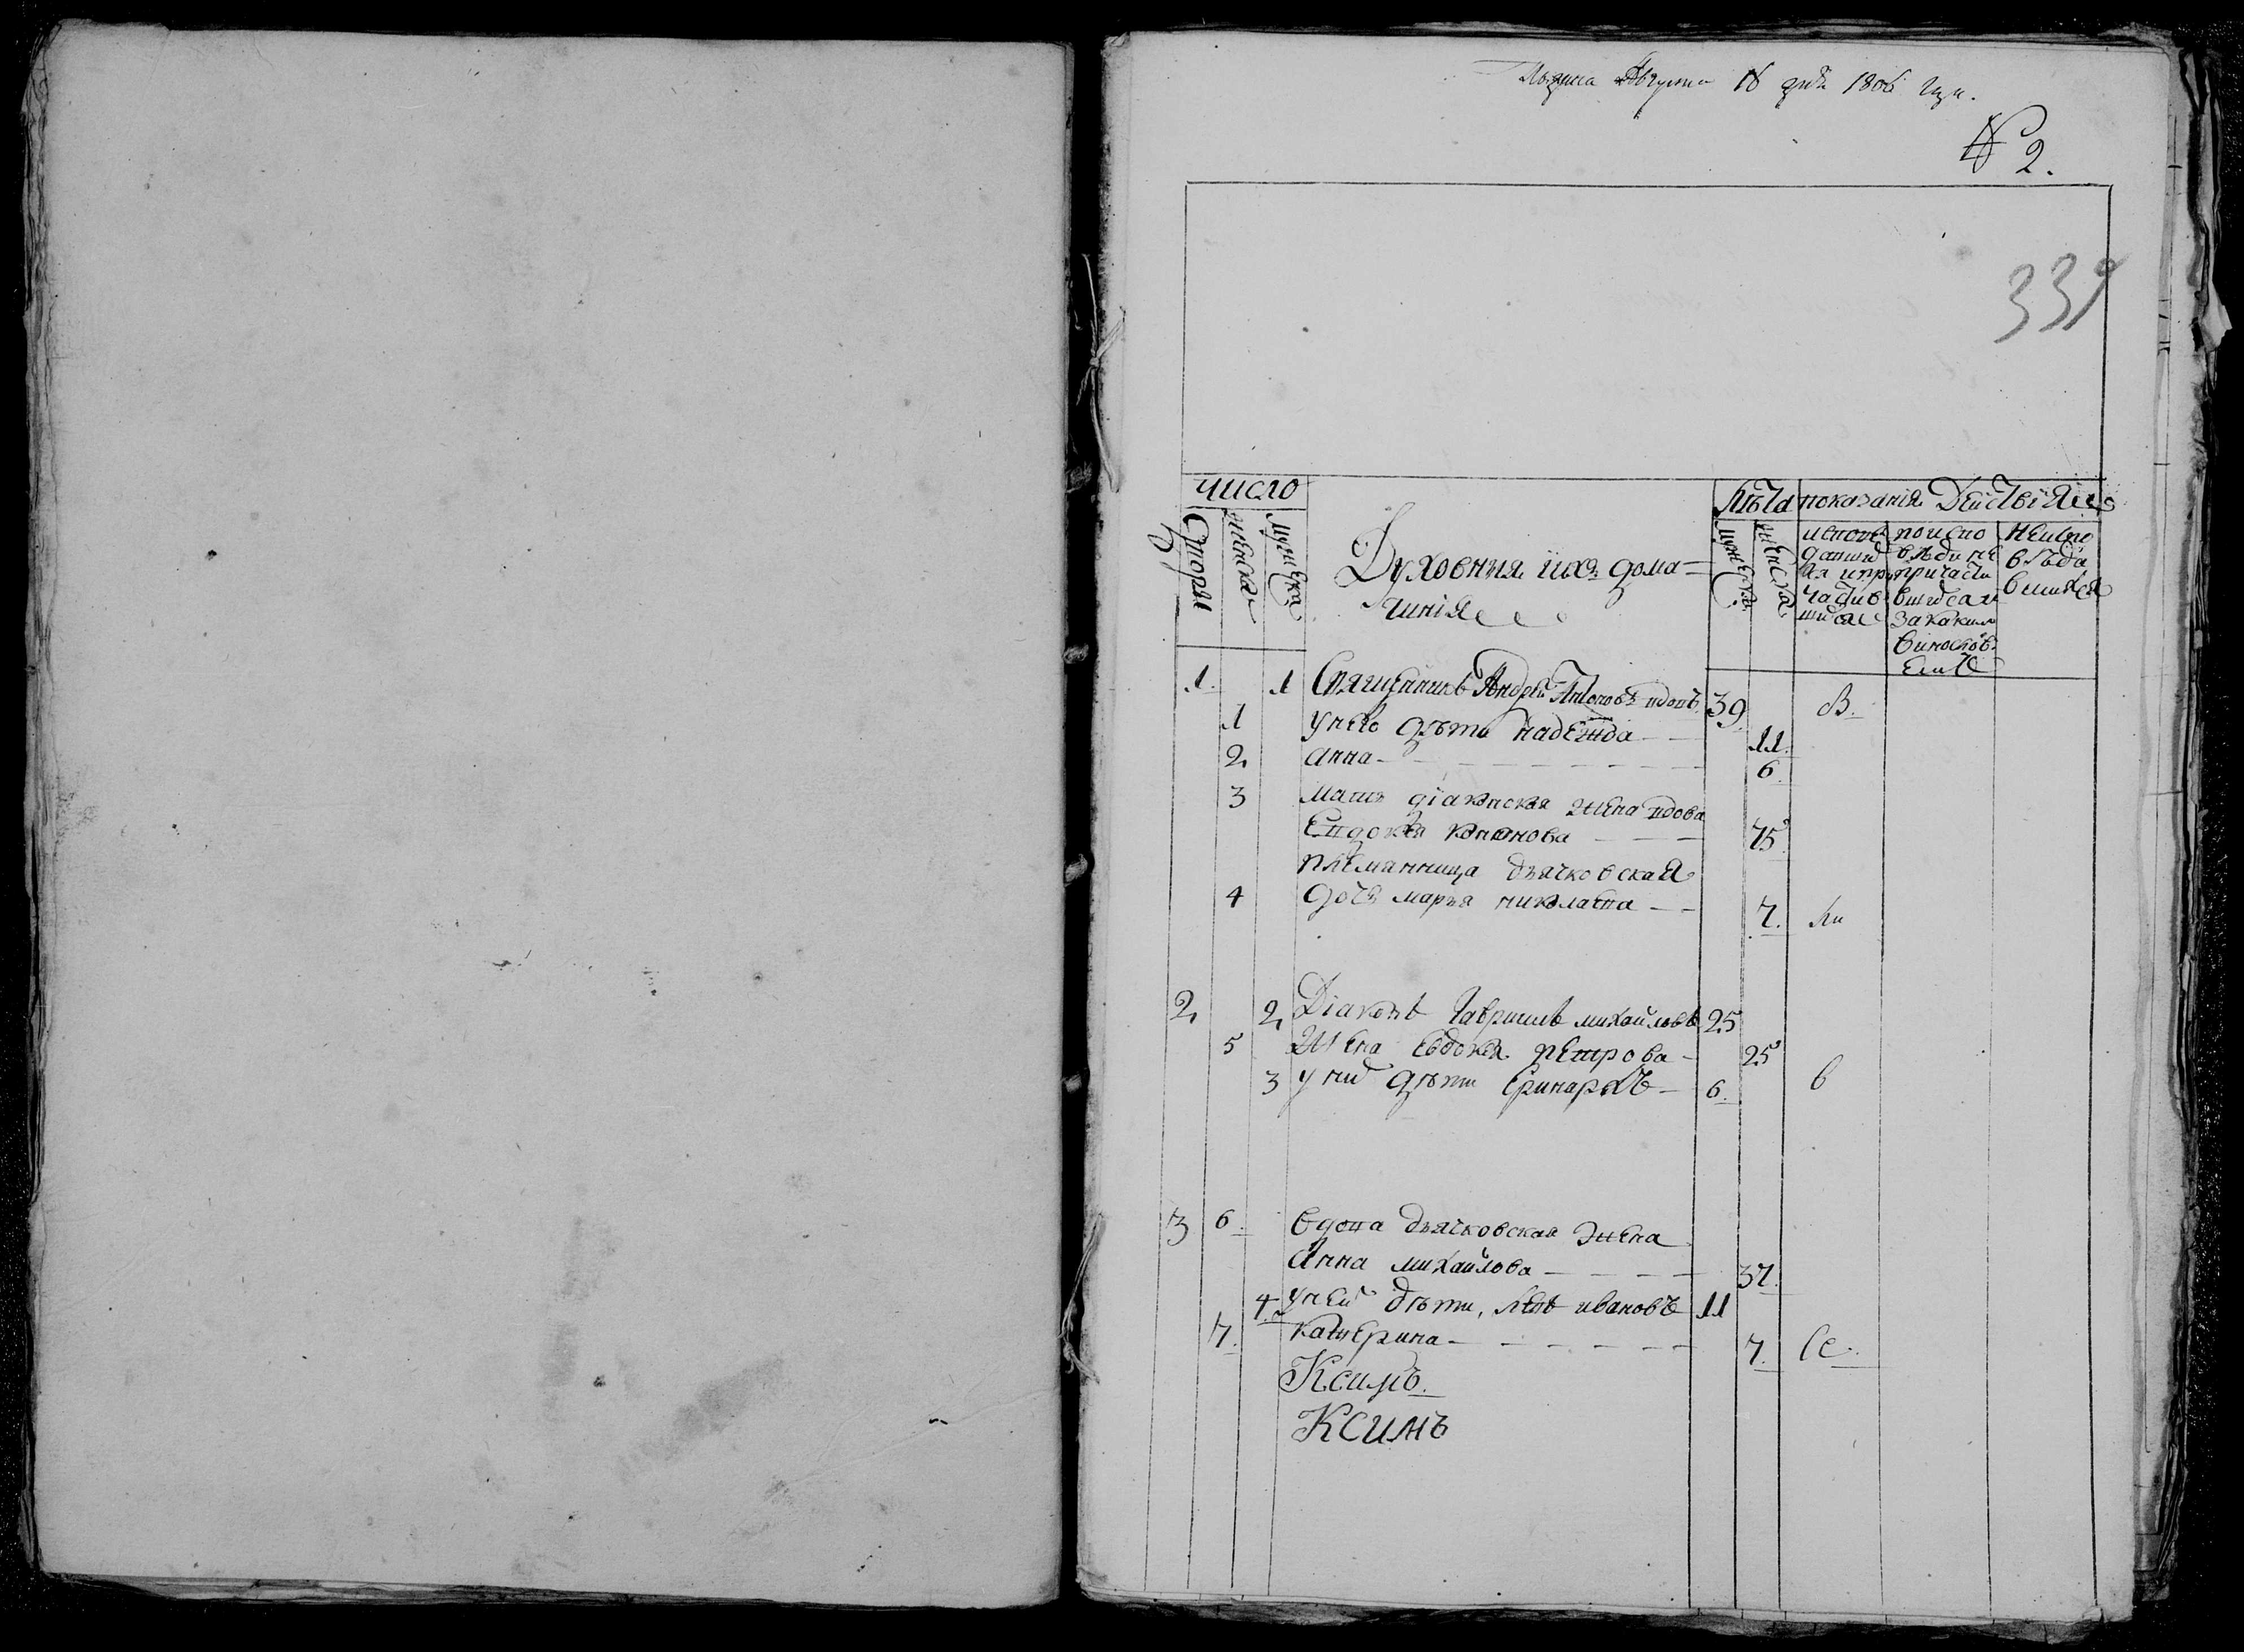 Августа 18 дня 1806 года.
№ 2.
339
число
лѣта показанія Действія
дворы
женска
мужеска
Духовныя ихъ дома=
чиніи
мужеска.
женска
исповѣ
даніи
ая и при
частив
шихся
по испо
вѣди не
причасти
вшихся
за каким
винослов
емъ
не испо
вѣда
вшихся
1. 1 Священникъ Андрей Антоновъ вдовъ 39 в.
1 у него дѣти надежда 11.
2. анна 6.
3 мати діаконская жена вдова
Евдокея 75
племянница дьячковская
4 дочь марья николаева 7. ли
2, 2, Діаконъ Гавриилъ михайловъ 25
5 Жена Евдокея петрова 25
3 у них дѣти Еринархъ 6. в
3 6. Вдова дьячковская жена
Анна михайлова 37.
4. у ней дѣти, левъ ивановъ 11
7. катерина 7. се.
Ксимъ.
Ксимъ